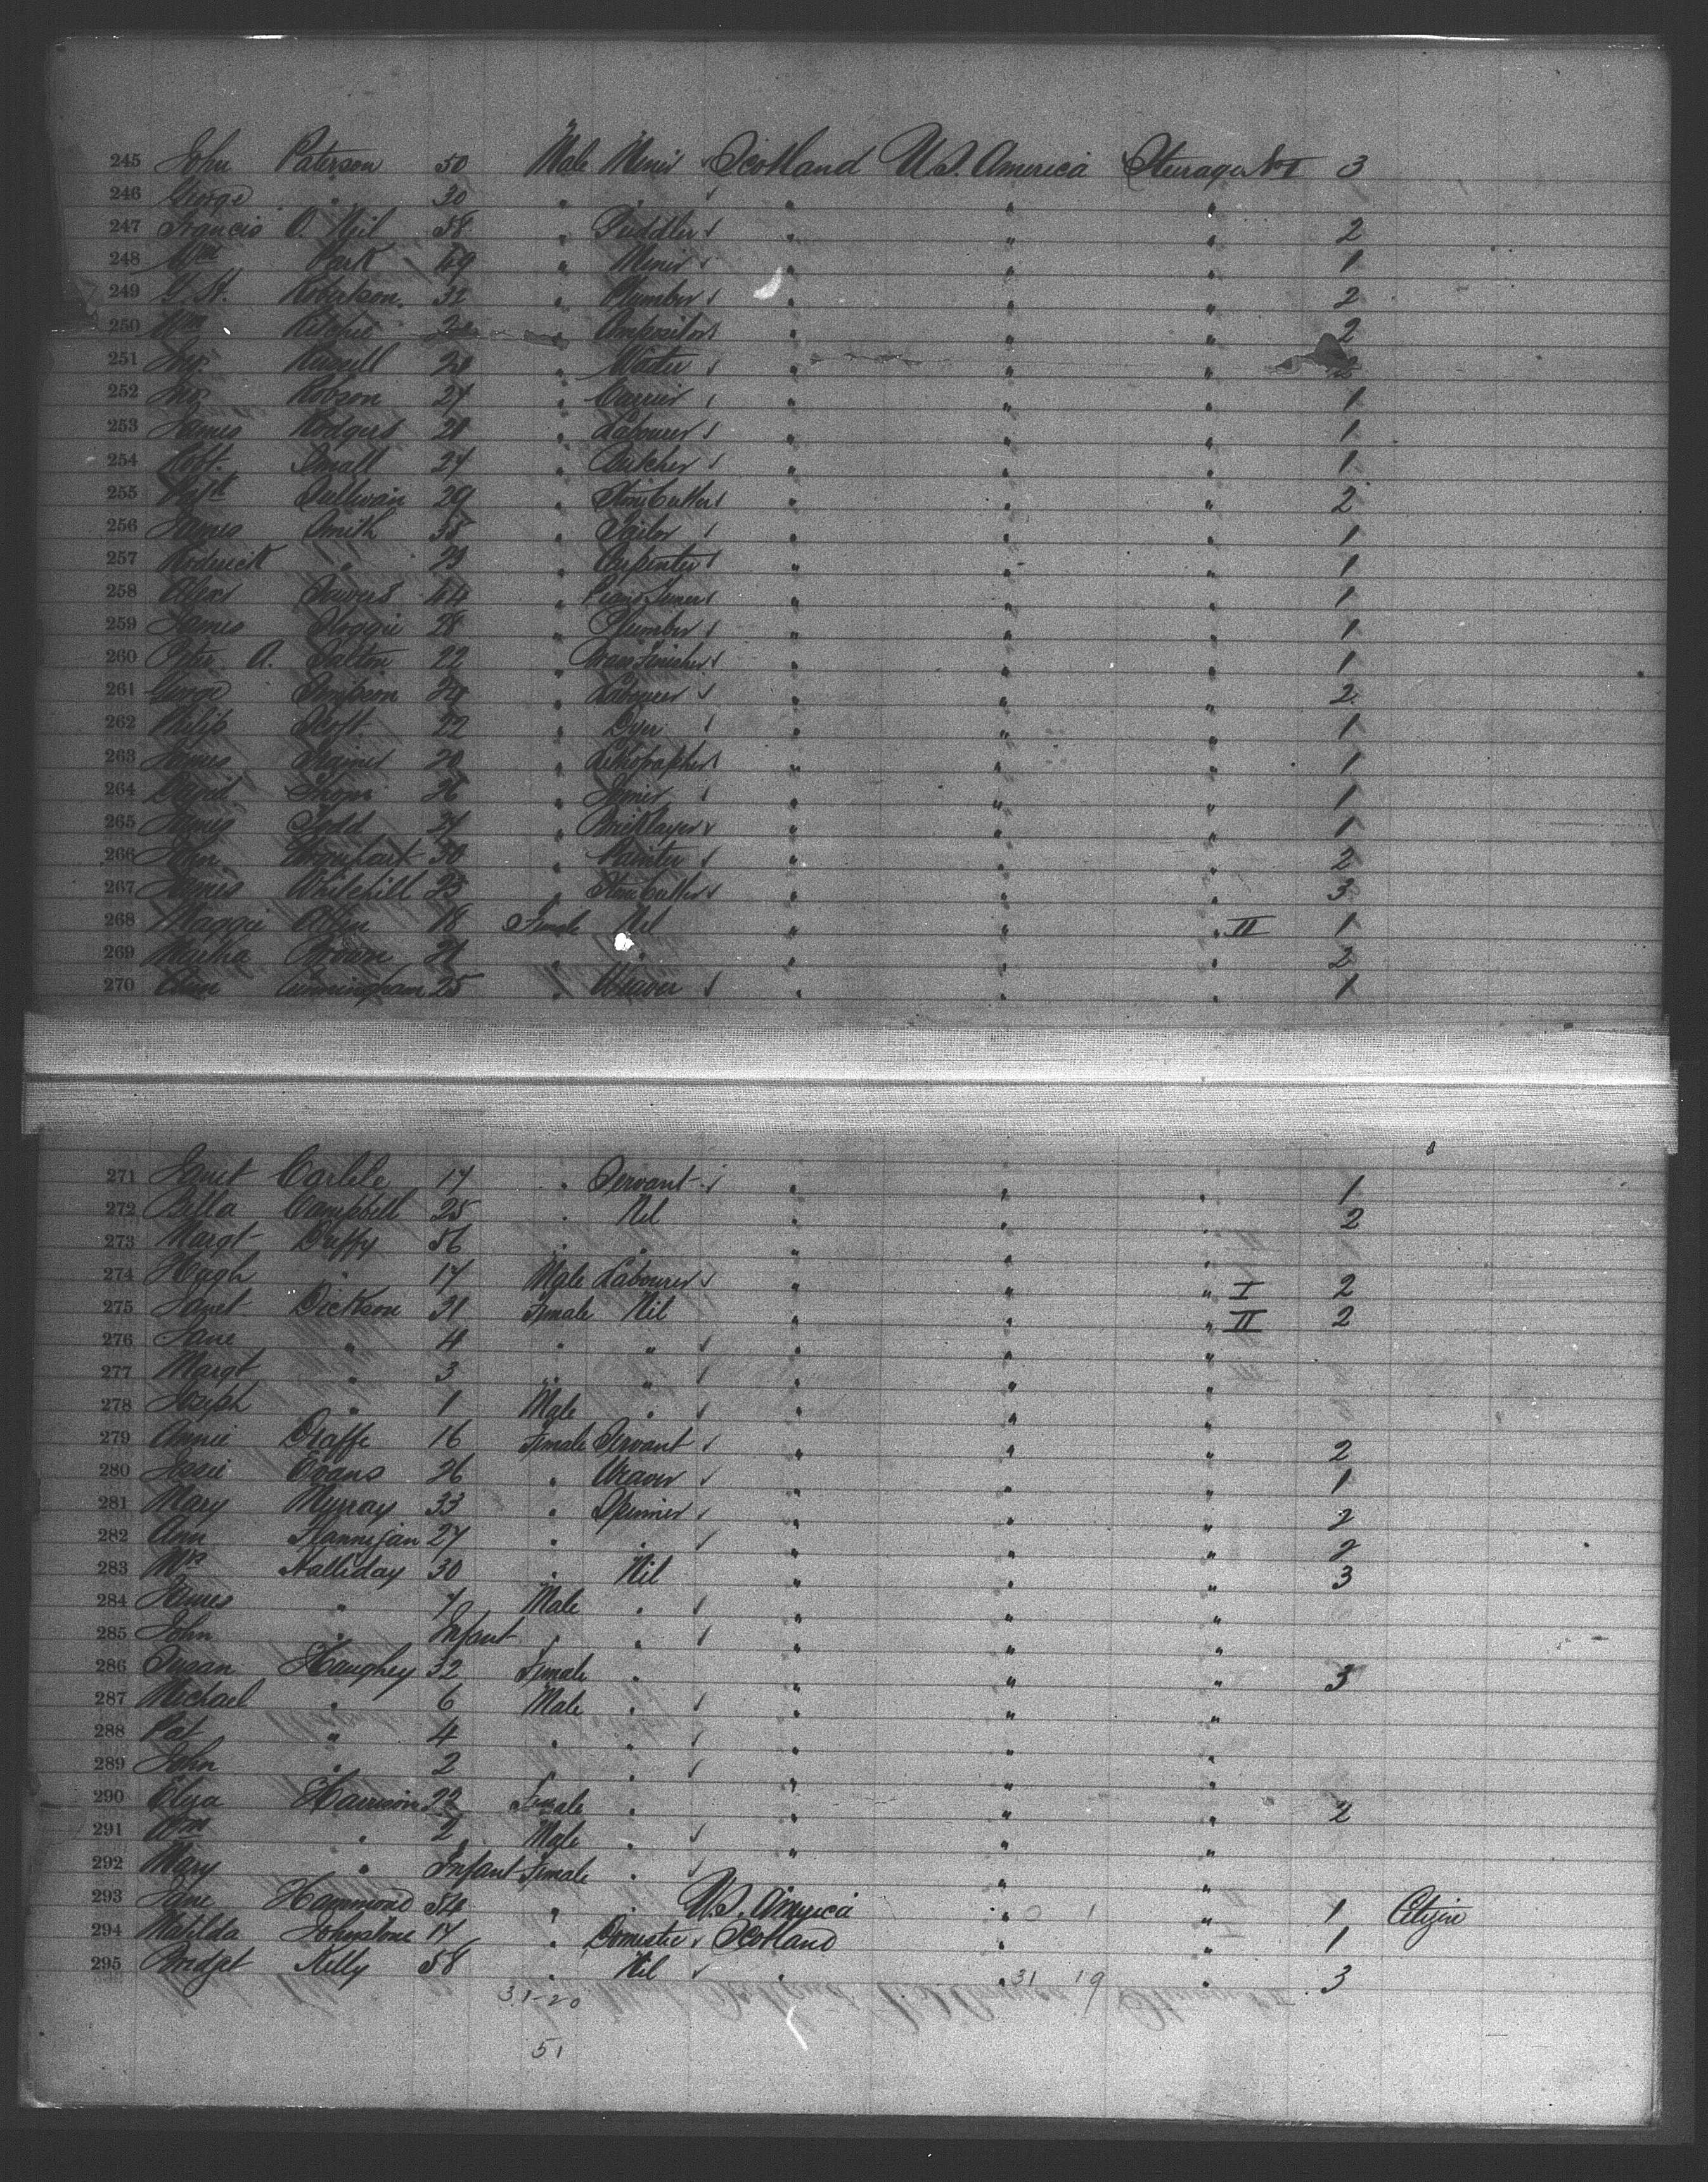 245 John Paterson 50 Male Miner Scotland U.S. America Steerage No I 3
246 George " 30 " " " " "
247 Francis O. Neil 58 " Puddler " " " 2
248 Wm Park 49 " Miner " " " 1
249 Robertson 32 " Plumber " " " 2
250 Wm Ritchie " Compositor " " " 2
251 Jno. Russell 28 " " " "
252 Jno Robson 27 " Currier " " " 1
253 James Rodgers 28 " Labourer " " " 1
254 Robt. Small 27 " Butcher " " " 1
255 Sullivan 29 " Stone Cutter " " " 2
256 James Smith 35 " Tailor " " " 1
257 Roderick " 23 " Carpenter " " " 1
258 Alexr 44 " Piano Tuner " " " 1
259 James Stoggie 28 " Plumber " " " 1
260 Peter A. Salton 22 " Brass Finisher " " " 1
261 George Simpson 24 " Labourer " " " 2
262 Philip Scott 22 " Dyer " " " 1
263 James 20 " Lithographer " " " 1
264 David Thom 26 " Joiner " " " 1
265 James Todd 27 " Bricklayer " " " 1
266 John Urquhart 30 " Painter " " " 2
267 James Whitehill 25 " Stone Cutter " " " 3
268 Maggie Allen 18 Female Nil " " " II 1
269 Martha Brown 21 " " " " " 2
270 Ann Cunningham 25 " Weaver " " " 1
271 Janet Carlile 17 " Servant " " " 1
272 Bella Campbell 25 " Nil " " " 2
273 Margt Duffy 56 " " " " "
274 Hugh " 17 Male Labourer " " " I 2
275 Janet Dickson 31 Female Nil " " " II 2
276 Jane " 4 " " " " "
277 Margt " 3 " " " " "
278 Joseph " 1 Male " " " "
279 Annie Draffe 16 Female Servant " " " 2
280 Jessie Evans 26 " Weaver " " " 1
281 Mary Murray 33 " Spinner " " " 2
282 Ann Flannigan 27 " " " " " 2
283 Mrs Halliday 30 " Nil " " " 3
284 James " 7 Male " " " "
285 John " Infant " " " " "
286 Susan Haughey 32 Female " " " " 3
287 Michael " 6 Male " " " "
288 Pat " 4 " " " " "
289 John " 2 " " " " "
290 Eliza Harrison 22 Female " " " " 2
291 Wm " 2 Male " " " "
292 Mary " Infant Female " " " "
293 Jane Hammond 54 " " U.S. America " 0 1 " 1 Citizen
294 Matilda Johnstone 17 " Domestic Scotland " " 1
295 Bridget Kelly 58 " Nil " " 31 19 " 3
31-20
51